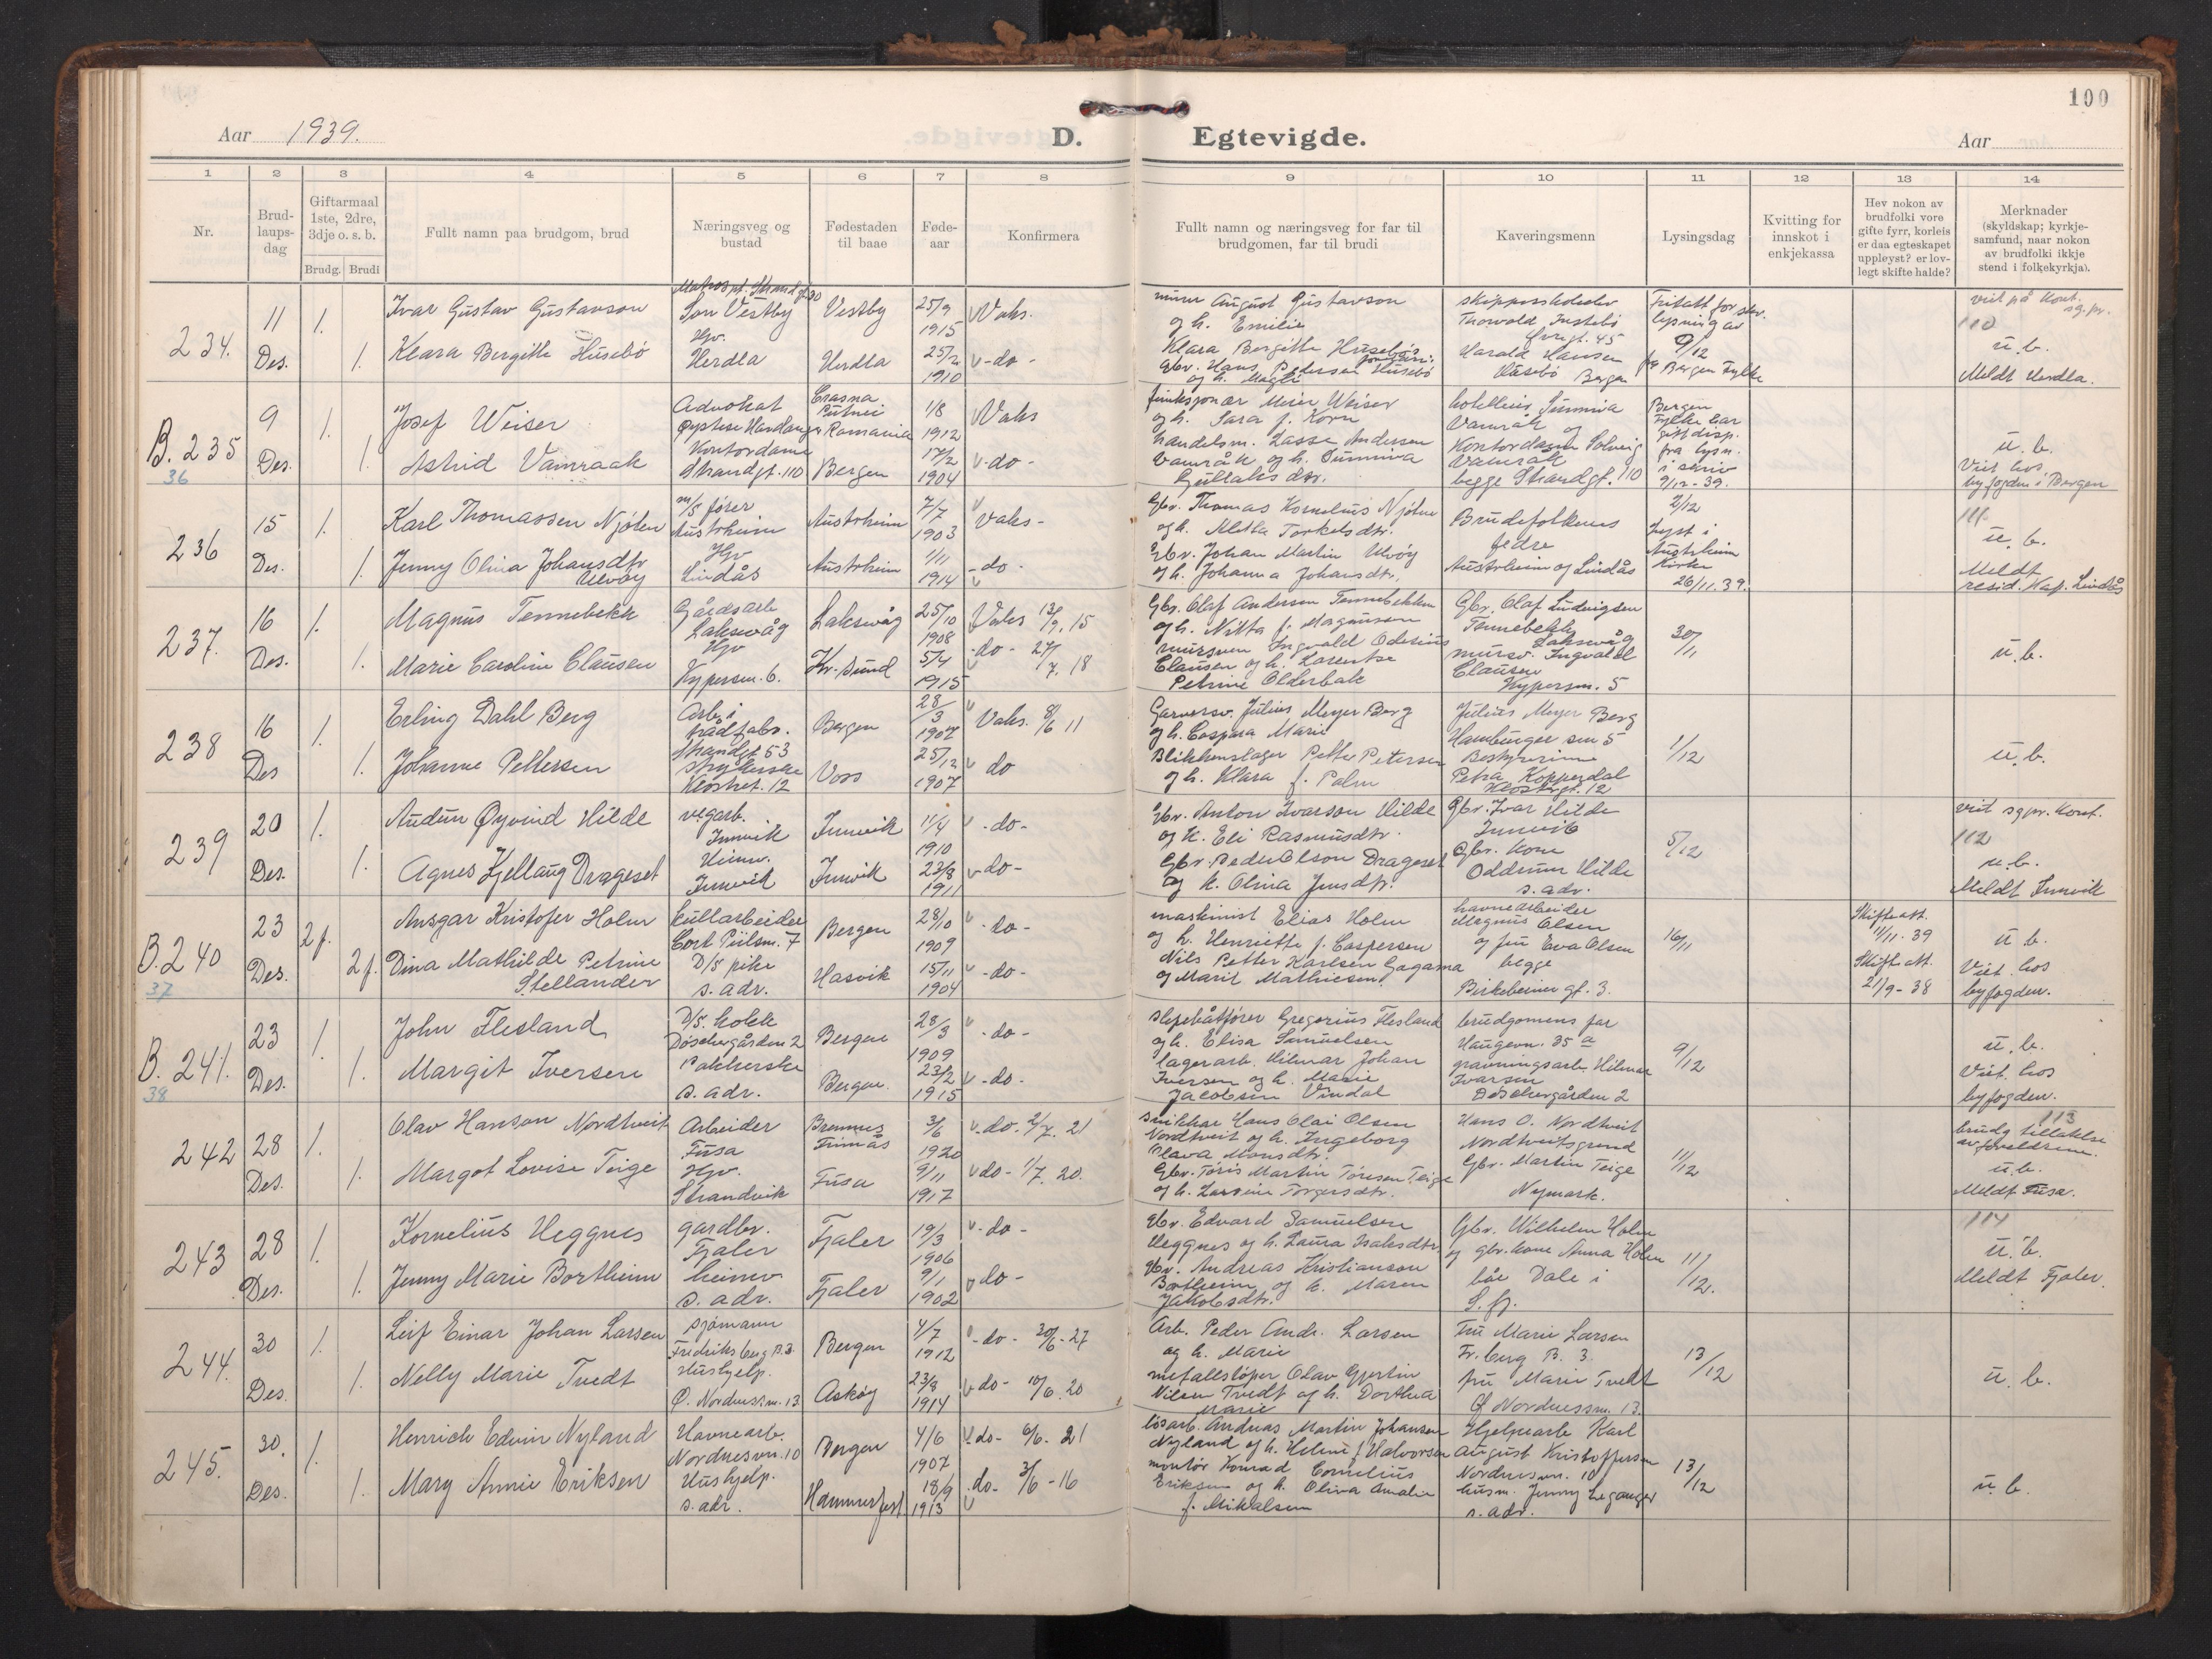 100
Aar 1939.
D. Egtevigde.
Aar
1 2 3 4 5 6 7 8 9 10 11 12 13 14
Nr.
Brud-
laups-
dag
Giftarmaal
1ste, 2dre,
3dje o. s. b.
Brudg. Brudi
Fullt namn paa brudgom, brud
Næringsveg og
bustad
Fødestaden
til baae
Føde-
aar
Konfirmera
Fullt namn og næringsveg for far til
brudgomen, far til brudi
Kaveringsmenn
Lysingsdag
Kvitting for
innskot i
enkjekassa
Hev nokon av
brudfolki vore
gifte fyrr, korleis
er daa egteskapet
uppløyst? er lov-
legt skifte halde?
Merknader
(skyldskap; kyrkje-
samfund, naar nokon
av brudfolki ikkje
stend i folkekyrkja).
234.
11
Des.
1.
1.
Ivar Gustav Gustavson
Klara Bergitte Husebö
Son Vestby
Hv.
Herdla
Vestby
Herdla
25/9
1915
25/2
1910
Vaks.
-do-
murer August Gustavson
og h. Emilie
Klara Bergitte Husebö's
Gbr. Hans Pedersen Husebö
og h. Magli
Thorvald Instebö
Harald Hansen
Husebö Bergen
Fritatt for
lysning av
9/12
Bergen Fylke
viet på kont.
110
u.b.
Meldt Herdla.
B. 235
36
9
Des.
1.
1.
Josef Weiser
Astrid Vamraak
Advokat
Øystese Hardanger
Kontordame
Strandgt. 110
Crasna
Putnei
Romania
Bergen
1/8
1912
17/2
1904
Vaks
-do-
funksjonær Meier Weiser
og h. Sara f. Korn
handelsm. Lasse Andersen
Vamråk og h. Sunniva
Gullaksdtr.
Sunniva
Vamråk og
Kontordame Solveig
Vamråk
begge Strandgt. 110
Bergen
Fylke har
gitt disp.
fra lysn.
i skriv
9/12-39.
u.b.
Viet hos
byfogden i Bergen
236
15
Des.
1.
1.
Karl Thomassen Njöten
Jenny Olina Johansdtr
Ulvöy
m/s förer
Austrheim
Hv
Lindås
Austrheim
Austrheim
7/7
1903
1/11
1914
Vaks-
-do-
Gbr. Thomas Kornelius Njöten
og h. Metta Torkelsdtr.
Gbr. Johan Martin Ulvöy
og h. Johanna Johansdtr.
Brudefolkenes
fedre
Austrheim og Lindås
2/12
Lyst i
Austrheim
Kirke
26/11.39.
111.
u.b.
Meldt
resid. Kap. Lindås
237.
16
Des.
1.
1.
Magnus Tennebekk
Marie Caroline Clausen
Gårdsarb
Laksevåg
Hv
Kypersm. 6.
Laksevåg
Kr.sund
25/10
1908
5/4
1915
Vaks 13/9.15
-do- 27/7.18
Gbr. Olaf Andersen Tennebekken
og h. Nitta f. Magnussen
mursven Ingvald Odenius
Clausen og h. Larentse
Petrine Olderbak
Gbr. Olaf Ludvigsen
Tennebekk
Laksevåg
mursv. Ingvald
Clausen
Kypersm. 5
30/11
u.b.
238
16
Des
1.
1.
Erling Dahl Berg
Johanne Pettersen
Arb. i
trådfabr.
Strandgt 53
strykerske
Klostret. 12
Bergen
Voss
28/3
1907
25/12
1907
Vaks. 8/6 11
do
Garversv. Julius Meyer Berg
og h. Caspara Marie
Blikkenslager Petter Petersen
og h. Klara f. Palm
Julius Meyer Berg
Hamburger sm 5
Bestyrerinne
Petra Kopperdal
Klostergt. 12
1/12
u.b.
239
20
Des.
1.
1.
Audun Øyvind Hilde
Agnes Kjellaug Drageset
vegarb.
Innvik
Heimv.
Innvik
Innvik
Innvik
11/4
1910
23/8
1911
-do-
-do-
Gbr. Anton Ivarson Hilde
og k. Eli Rasmusdtr.
Gbr. Peder Olson Drageset
og k. Olina Jensdtr.
Gbr. Ivar Hilde
Innvik
Gbr. kone
Oddrun Hilde
s. adr.
5/12
viet sgpr. kont.
112
u.b.
Meldt Innvik
B. 240
37
23
Des.
2f.
2f.
Ansgar Kristofer Holm
Dina Mathilde Petrine
Stellander
kullarbeider
Cort Piilsm. 7
D/S pike
s. adr.
Bergen
Hasvik
28/10
1909
15/11
1904
-do-
-do-
maskinist Elias Holm
og h. Henriette f. Caspersen
Nils Petter Karlsen Gagama
og Marit Mathiesen.
havnearbeider
Magnus Olsen
og fru Eva Olsen
begge
Birkebeiner gt. 3.
16/11
Skifteatt.
11/11-39
Skifteatt.
21/9-38
u.b.
Viet hos
byfogden.
B. 241.
38
23
Des.
1.
1.
John Flesland
Margit Iversen
D/S. kokk
Döschergården 2
Pakkerske
s. adr.
Bergen
Bergen.
28/3
1909
23/2
1915
-do-
-do-
slepebåtförer Gregorius Flesland
og h. Elisa Samuelsen
lagerarb. Hilmar Johan
Iversen og h. Marie
Jacobsen Vindal
brudgomens far
Haugevn. 35 a
gravningsarb. Hilmar
Ivarsen
Döschergården 2
9/12
u.b.
Viet hos
byfogden.
242
28
Des.
1.
1.
Olav Hanson Nordtveit
Margot Lovise Teige
Arbeider
Fusa
Hv.
Strandvik
Bremnes
Finnås
Fusa
3/6
1920
9/11
1917
do. 2/7. 21
do- 1/7. 20.
snikkar Hans Olai Olsen
Nordtveit og h. Ingeborg
Olava Monsdtr.
Gbr. Töris Martin Töresen Teige
og h. Larsine Torgersdtr.
Hans O. Nordtveit
Nordtveitsgrend
Gbr. Martin Teige
Nymark.
11/12
113
brudg tillatelse
av foreldrene.
u.b.
Meldt Fusa.
243
28
Des.
1.
1.
Kornelius Heggnes
Jenny Marie Bortheim
gardbr.
Fjaler
heimv
s. adr.
Fjaler
Fjaler
19/3
1906
9/1
1902
-do-
do-
Gbr. Edvard Samuelsen
Heggnes og h. Laura Isaksdtr
Gbr. Andreas Kristianson
Bortheim og k. Maren
Jakobsdtr.
Gbr. Wilhelm Holm
og gbr. kone Anna Holm
båe Dale i
S.fj.
11/12.
114
u.b.
Meldt Fjaler.
244.
30
Des.
1.
1.
Leif Einar Johan Larsen
Nelly Marie Tvedt
sjömann
Fredriksberg B.3
Hushjelp.
Ø. Nordnessm. 13
Bergen
Asköy
4/7
1912
23/8
1914
-do- 30/6-27
do- 10/6.20
Arb. Peder Andr. Larsen
og h. Marie
metallslöper Olav Gjertin
Nilsen Tvedt og h. Dorthea
Marie
Fru Marie Larsen
Fr.berg B. 3.
fru Marie Tvedt
Ø Nordnessm. 13.
13/12
u.b.
245.
30.
Des.
1.
1.
Henrich Edvin Nyland
Mary Annie Eriksen
Havnearb.
Nordnesvn. 10
Hushjelp.
s. adr.
Bergen
Hammerfest
4/6
1907
18/9
1913
do- 6/6. 21
do- 3/6-16
lösarb. Andreas Martin Johansen
Nyland og h. Helene f. Halvorsen
montör Konrad Cornelius
Eriksen og h. Olina Amalie
f. Mikkelsen
Hjelpearb Karl
August Kristoffersen
Nordnesvn. 10
husm. Jenny Leganger
s. adr.
13/12
u.b.